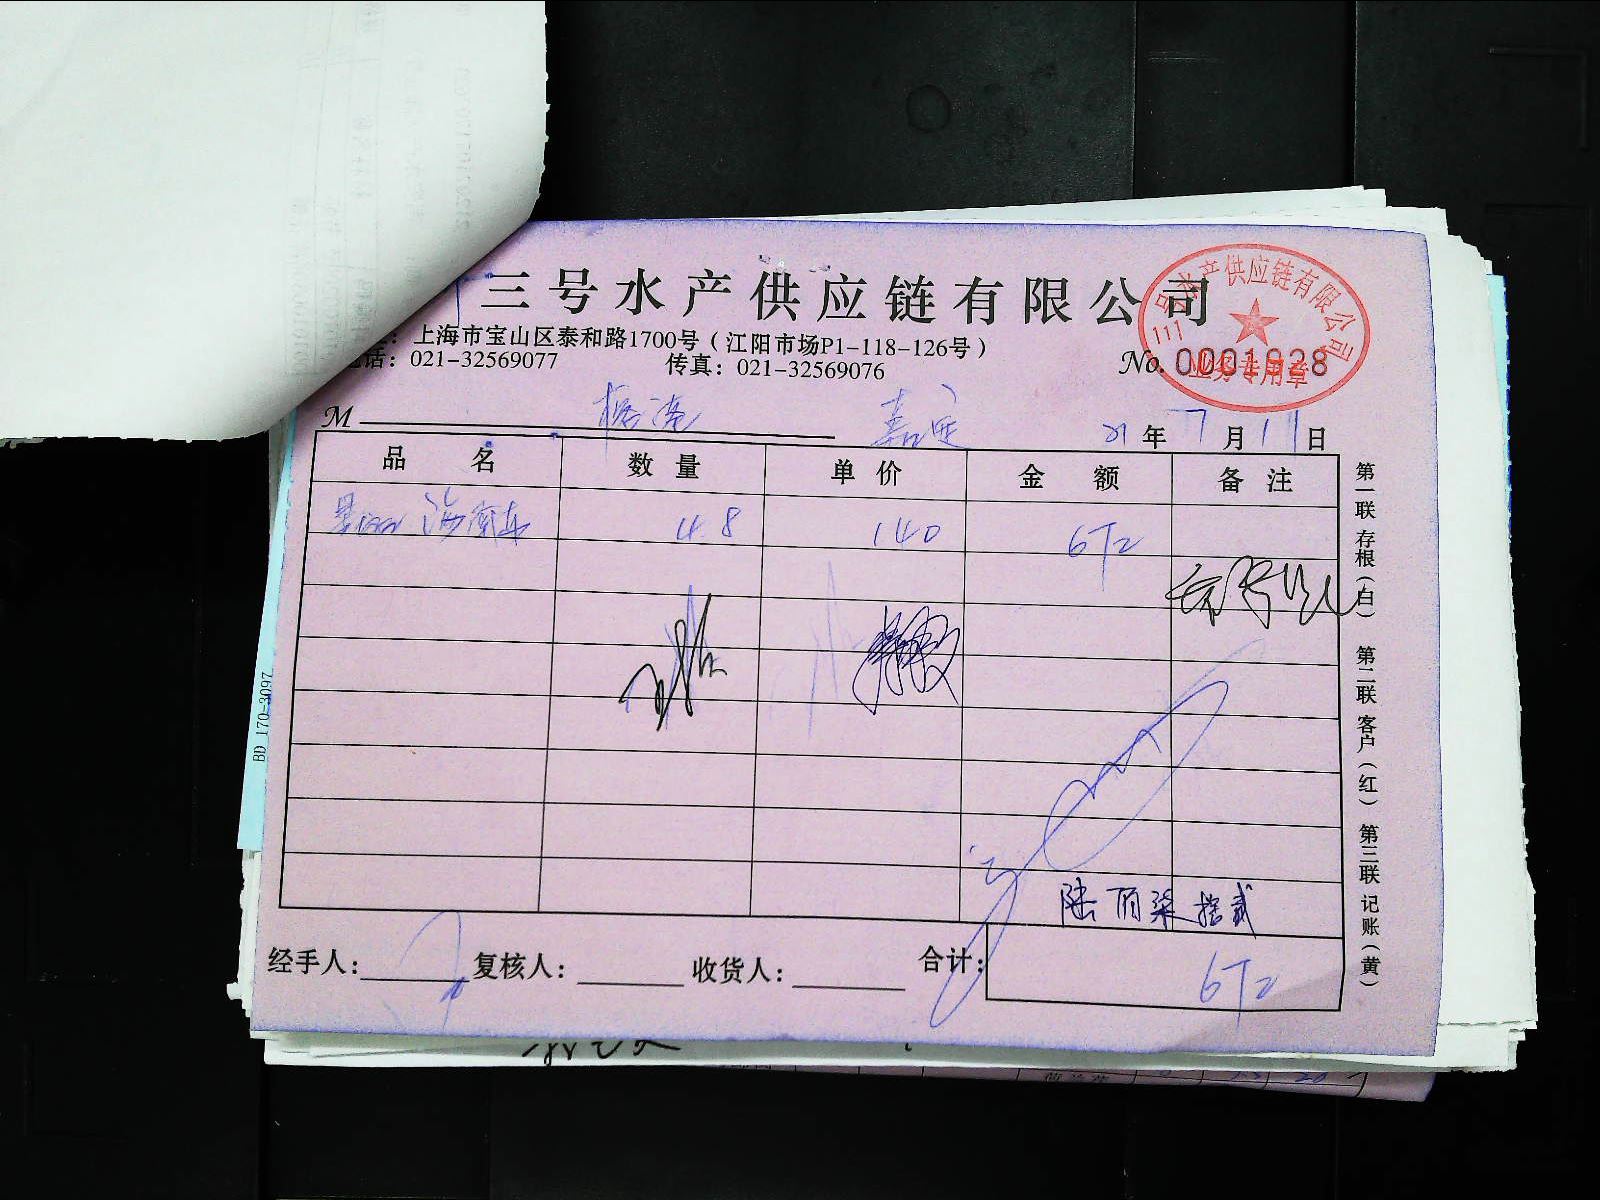 三号水产供应链有限公司
上海市宝山区泰和路1700号（江阳市场P1-118-126号）
电话：021-32569077 传真：021-32569076
No. 0001928
号水产供应链有限公司
业务专用章
M 嘉定 21年7月11日
品名 数量 单价 金额 备注
4.8 140 672
陆佰柒拾贰
经手人： 复核人： 收货人： 合计： 672
第一联 存根（白） 第二联 客户（红） 第三联 记账（黄）
BD 170-3097